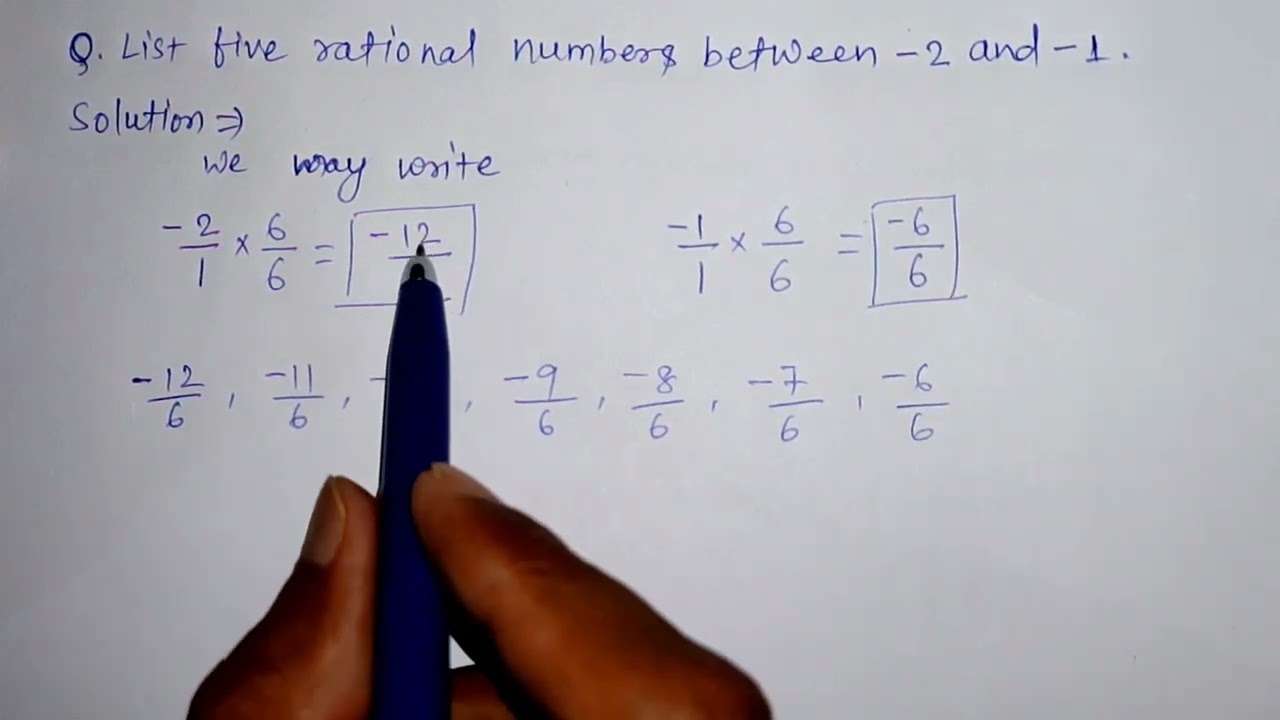 Q. List five rational numbers between -2 and -1.
Solution ⇒
we may write
-2/1 × 6/6 = -12 -1/1 × 6/6 = -6/6
-12/6 , -11/6 , - , -9/6 , -8/6 , -7/6 , -6/6